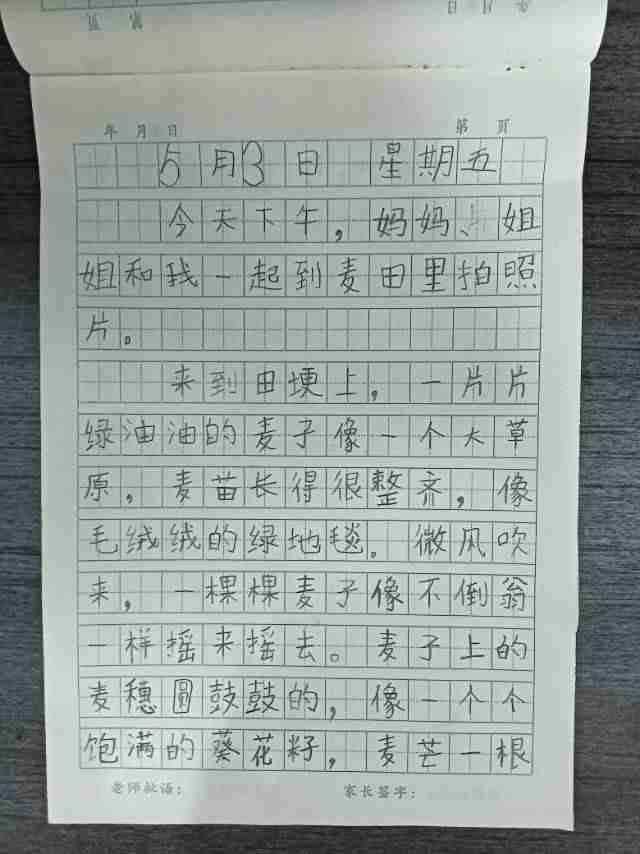 第 页 年 月 日
年 月 日 第 页
5月3日 星期五
今天下午，妈妈、姐
姐和我一起到麦田里拍照
片。
来到田埂上，一片片
绿油油的麦子像一个大草
原，麦苗长得很整齐，像
毛绒绒的绿地毯。微风吹
来，一棵棵麦子像不倒翁
一样摇来摇去。麦子上的
麦穗圆鼓鼓的，像一个个
饱满的葵花籽，麦芒一根
老师批语： 家长签字：